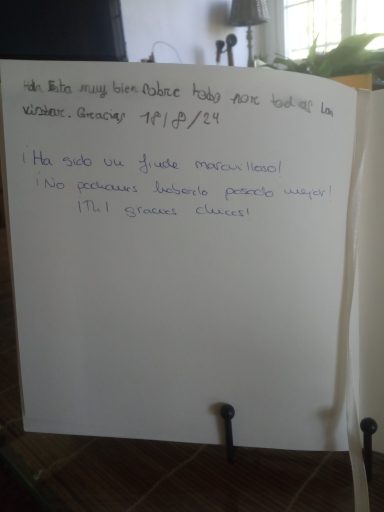 Esta muy bien sobre todo por todas las
vistas. Gracias 18/8/24
¡Ha sido un finde maravilloso!
¡No podíamos haberlo pasado mejor!
¡Mil gracias chicos!